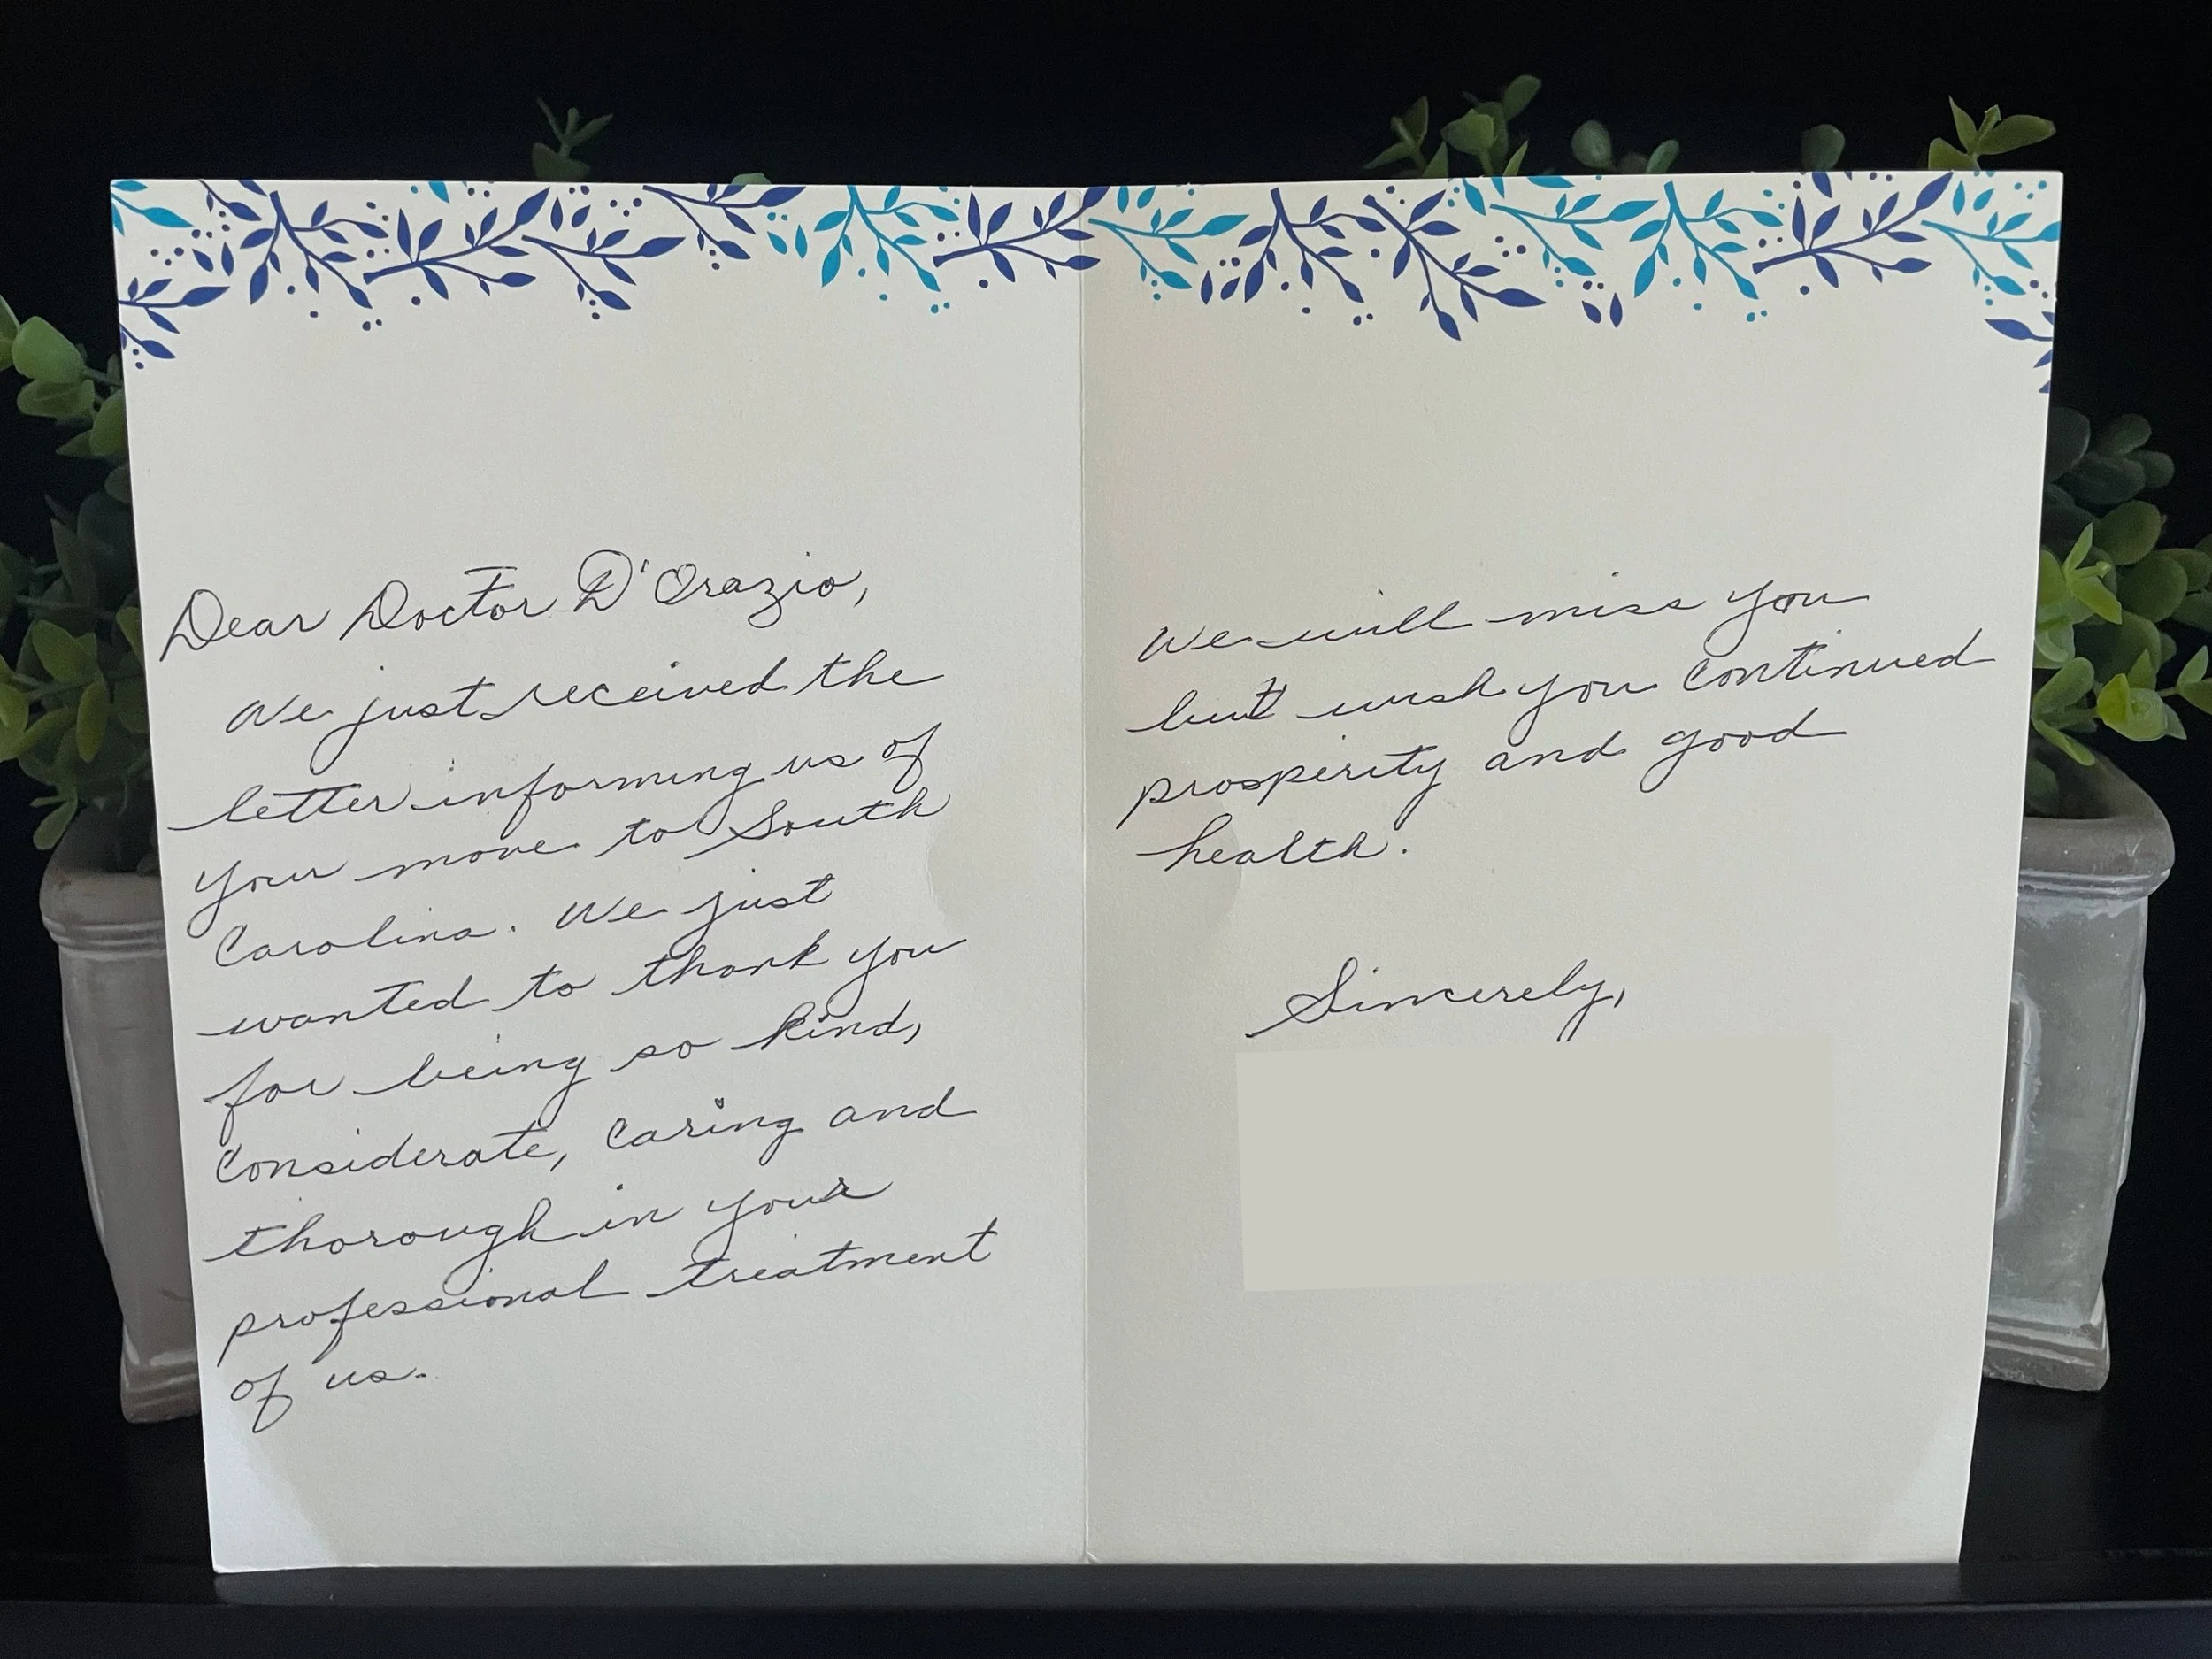 Dear Doctor D'Orazio,
We just received the
letter informing us of
your move to South
Carolina. We just
wanted to thank you
for being so kind,
considerate, caring and
thorough in your
professional treatment
of us.
We will miss you
but wish you continued
prosperity and good
health.
Sincerely,